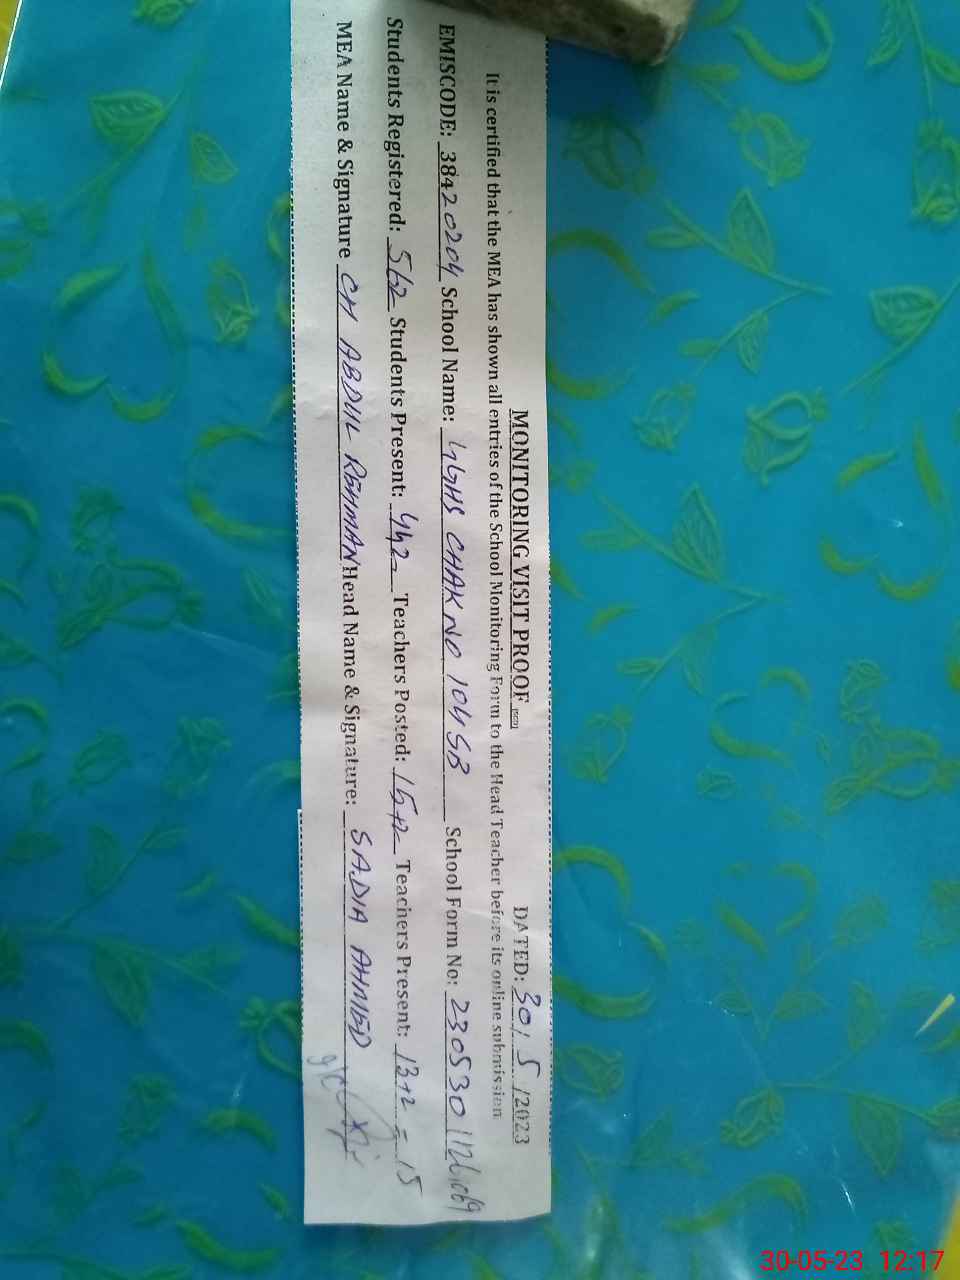 MONITORING VISIT PROOF DATED: 30/5/2023
It is certified that the MEA has shown all entries of the School Monitoring Form to the Head Teacher before its online submission
EMISCODE: 38420204 School Name: GGHS CHAK NO 104 SB School Form No: 230530
Students Registered: 562 Students Present: 442 Teachers Posted: 15+2 Teachers Present: 13+2 = 15
MEA Name & Signature CH ABDUL REHMAN Head Name & Signature: SADIA AHMED
30-05-23 12:17